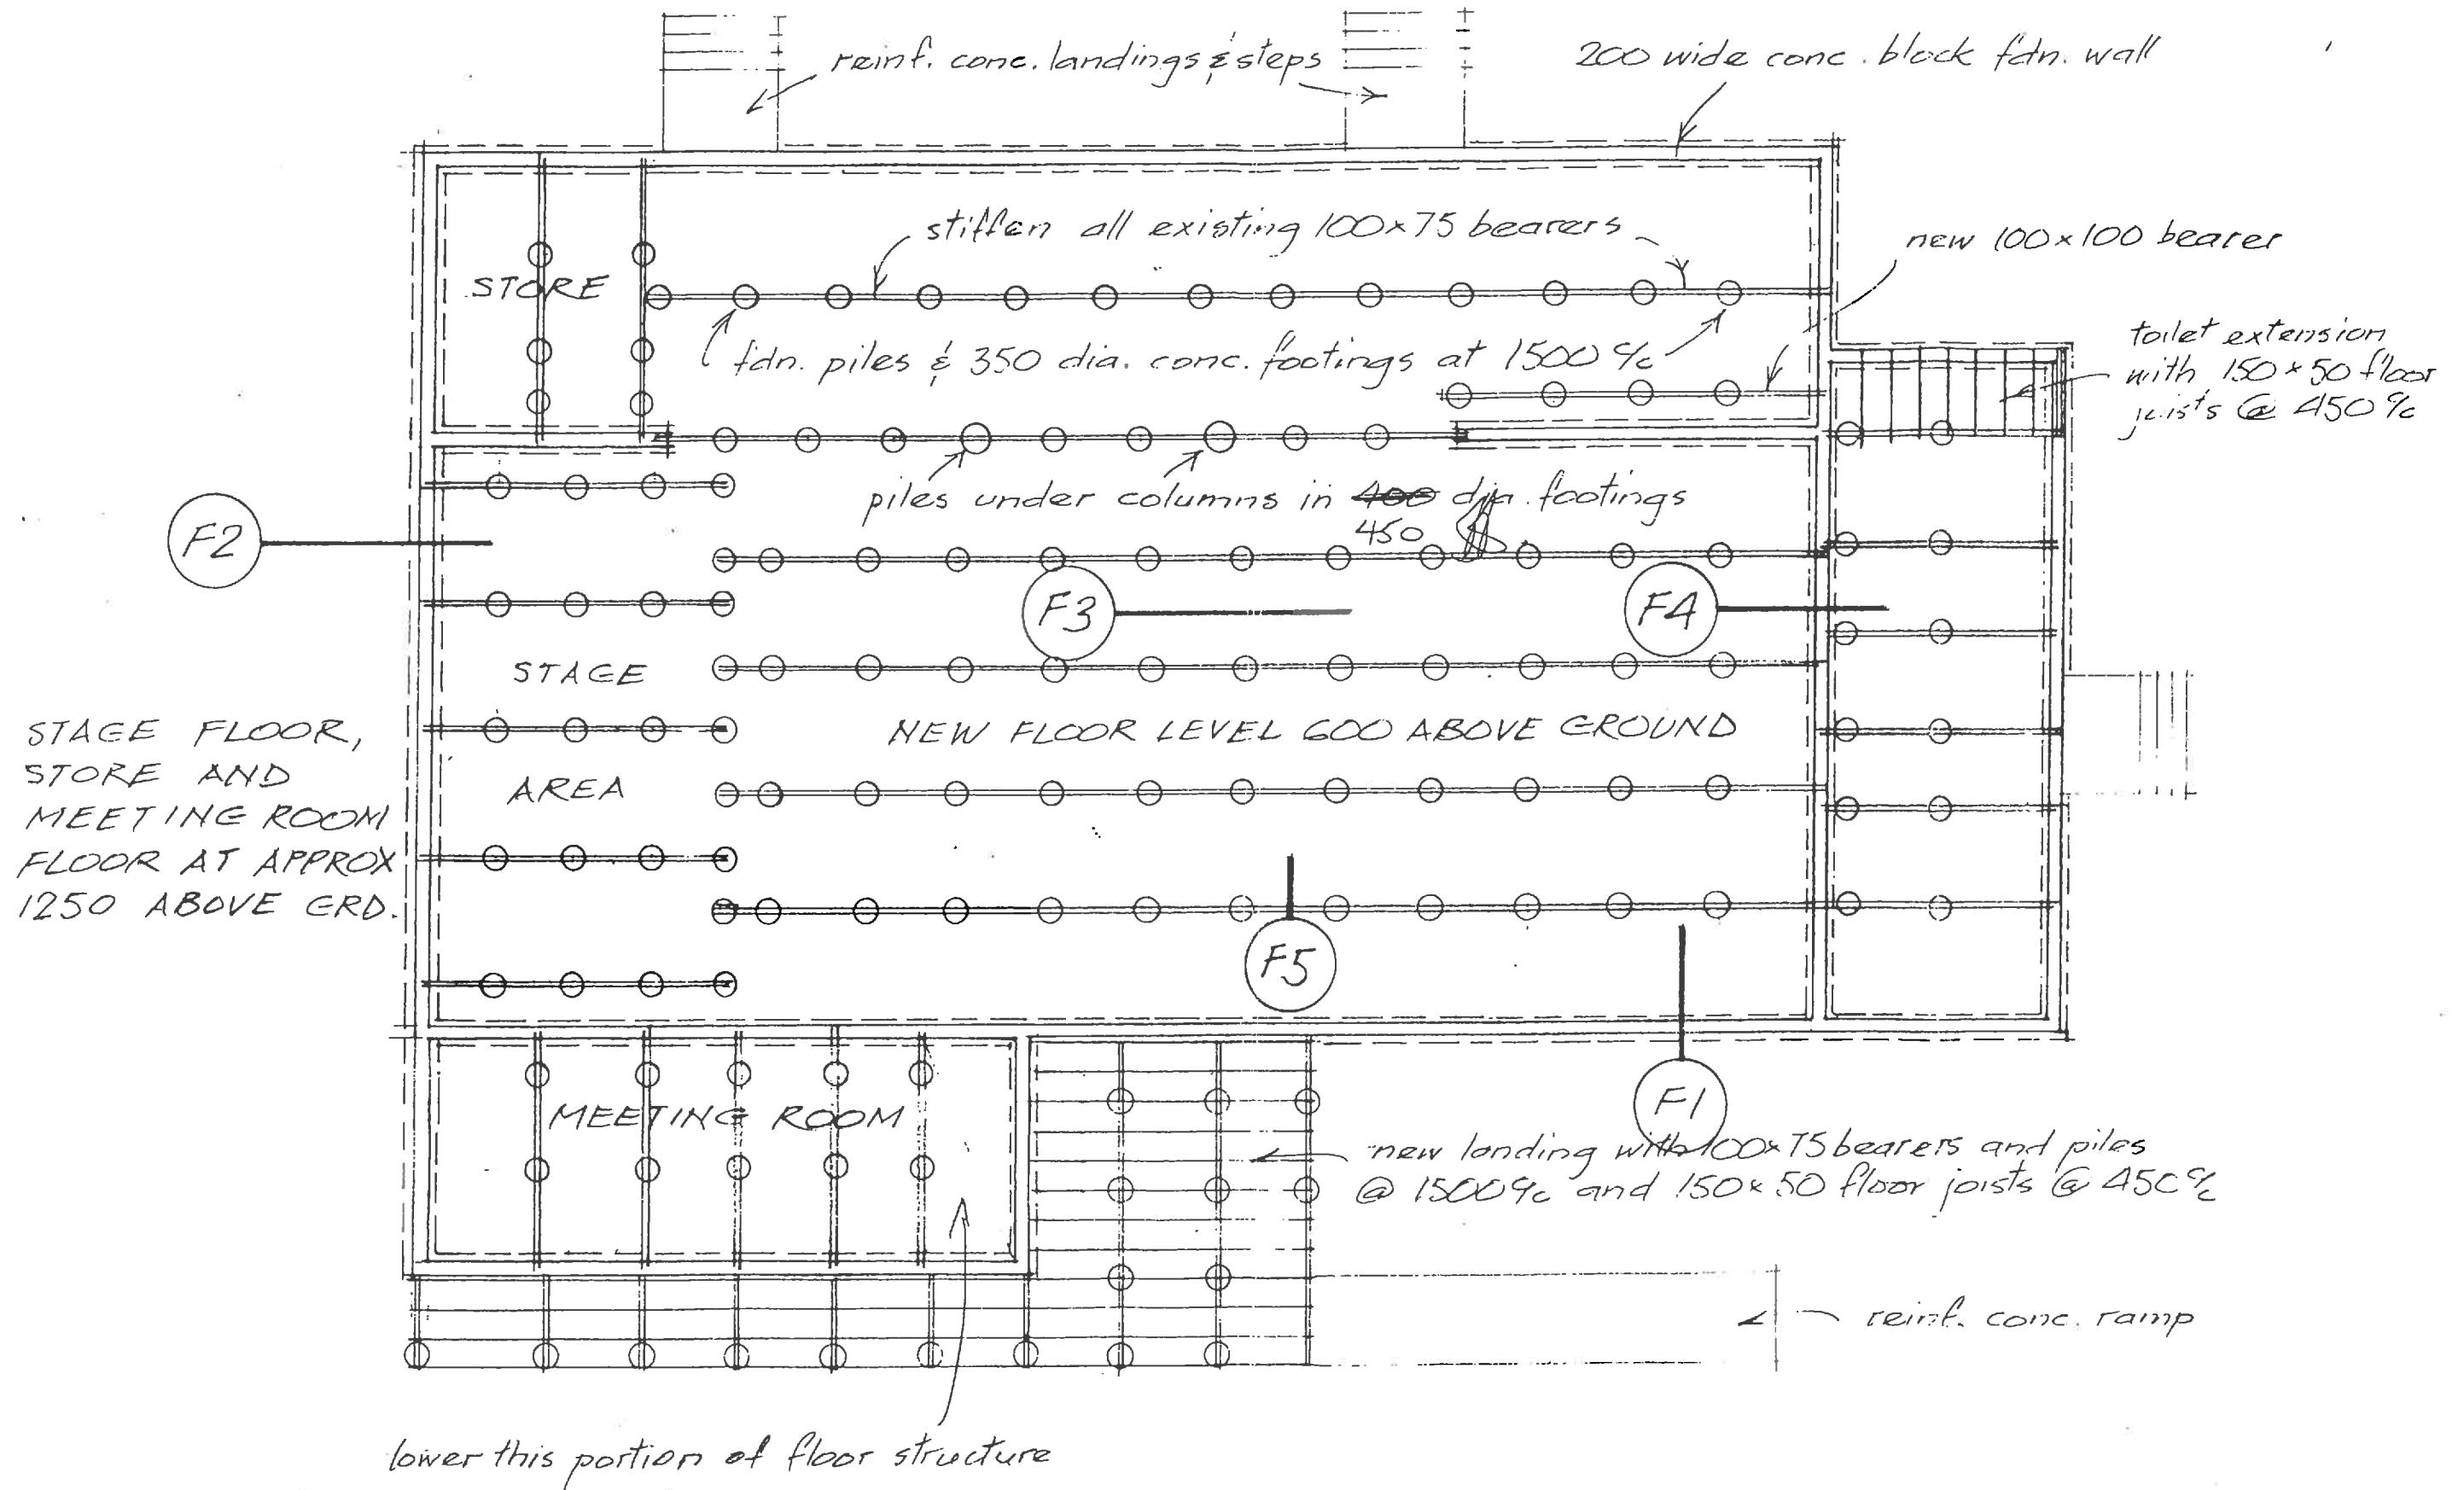 reinf. conc. landings & steps
200 wide conc. block fdn. wall
stiffen all existing 100x75 bearers
new 100x100 bearer
STORE
fdn. piles & 350 dia. conc. footings at 1500 %
toilet extension
with 150x50 floor
joists @ 450 %
piles under columns in 400 dia. footings
450
F2
F3
F4
STAGE
AREA
NEW FLOOR LEVEL 600 ABOVE GROUND
STAGE FLOOR,
STORE AND
MEETING ROOM
FLOOR AT APPROX
1250 ABOVE GRD.
F5
F1
MEETING ROOM
new landing with 100x75 bearers and piles
@ 1500 % and 150x50 floor joists @ 450 %
reinf. conc. ramp
lower this portion of floor structure